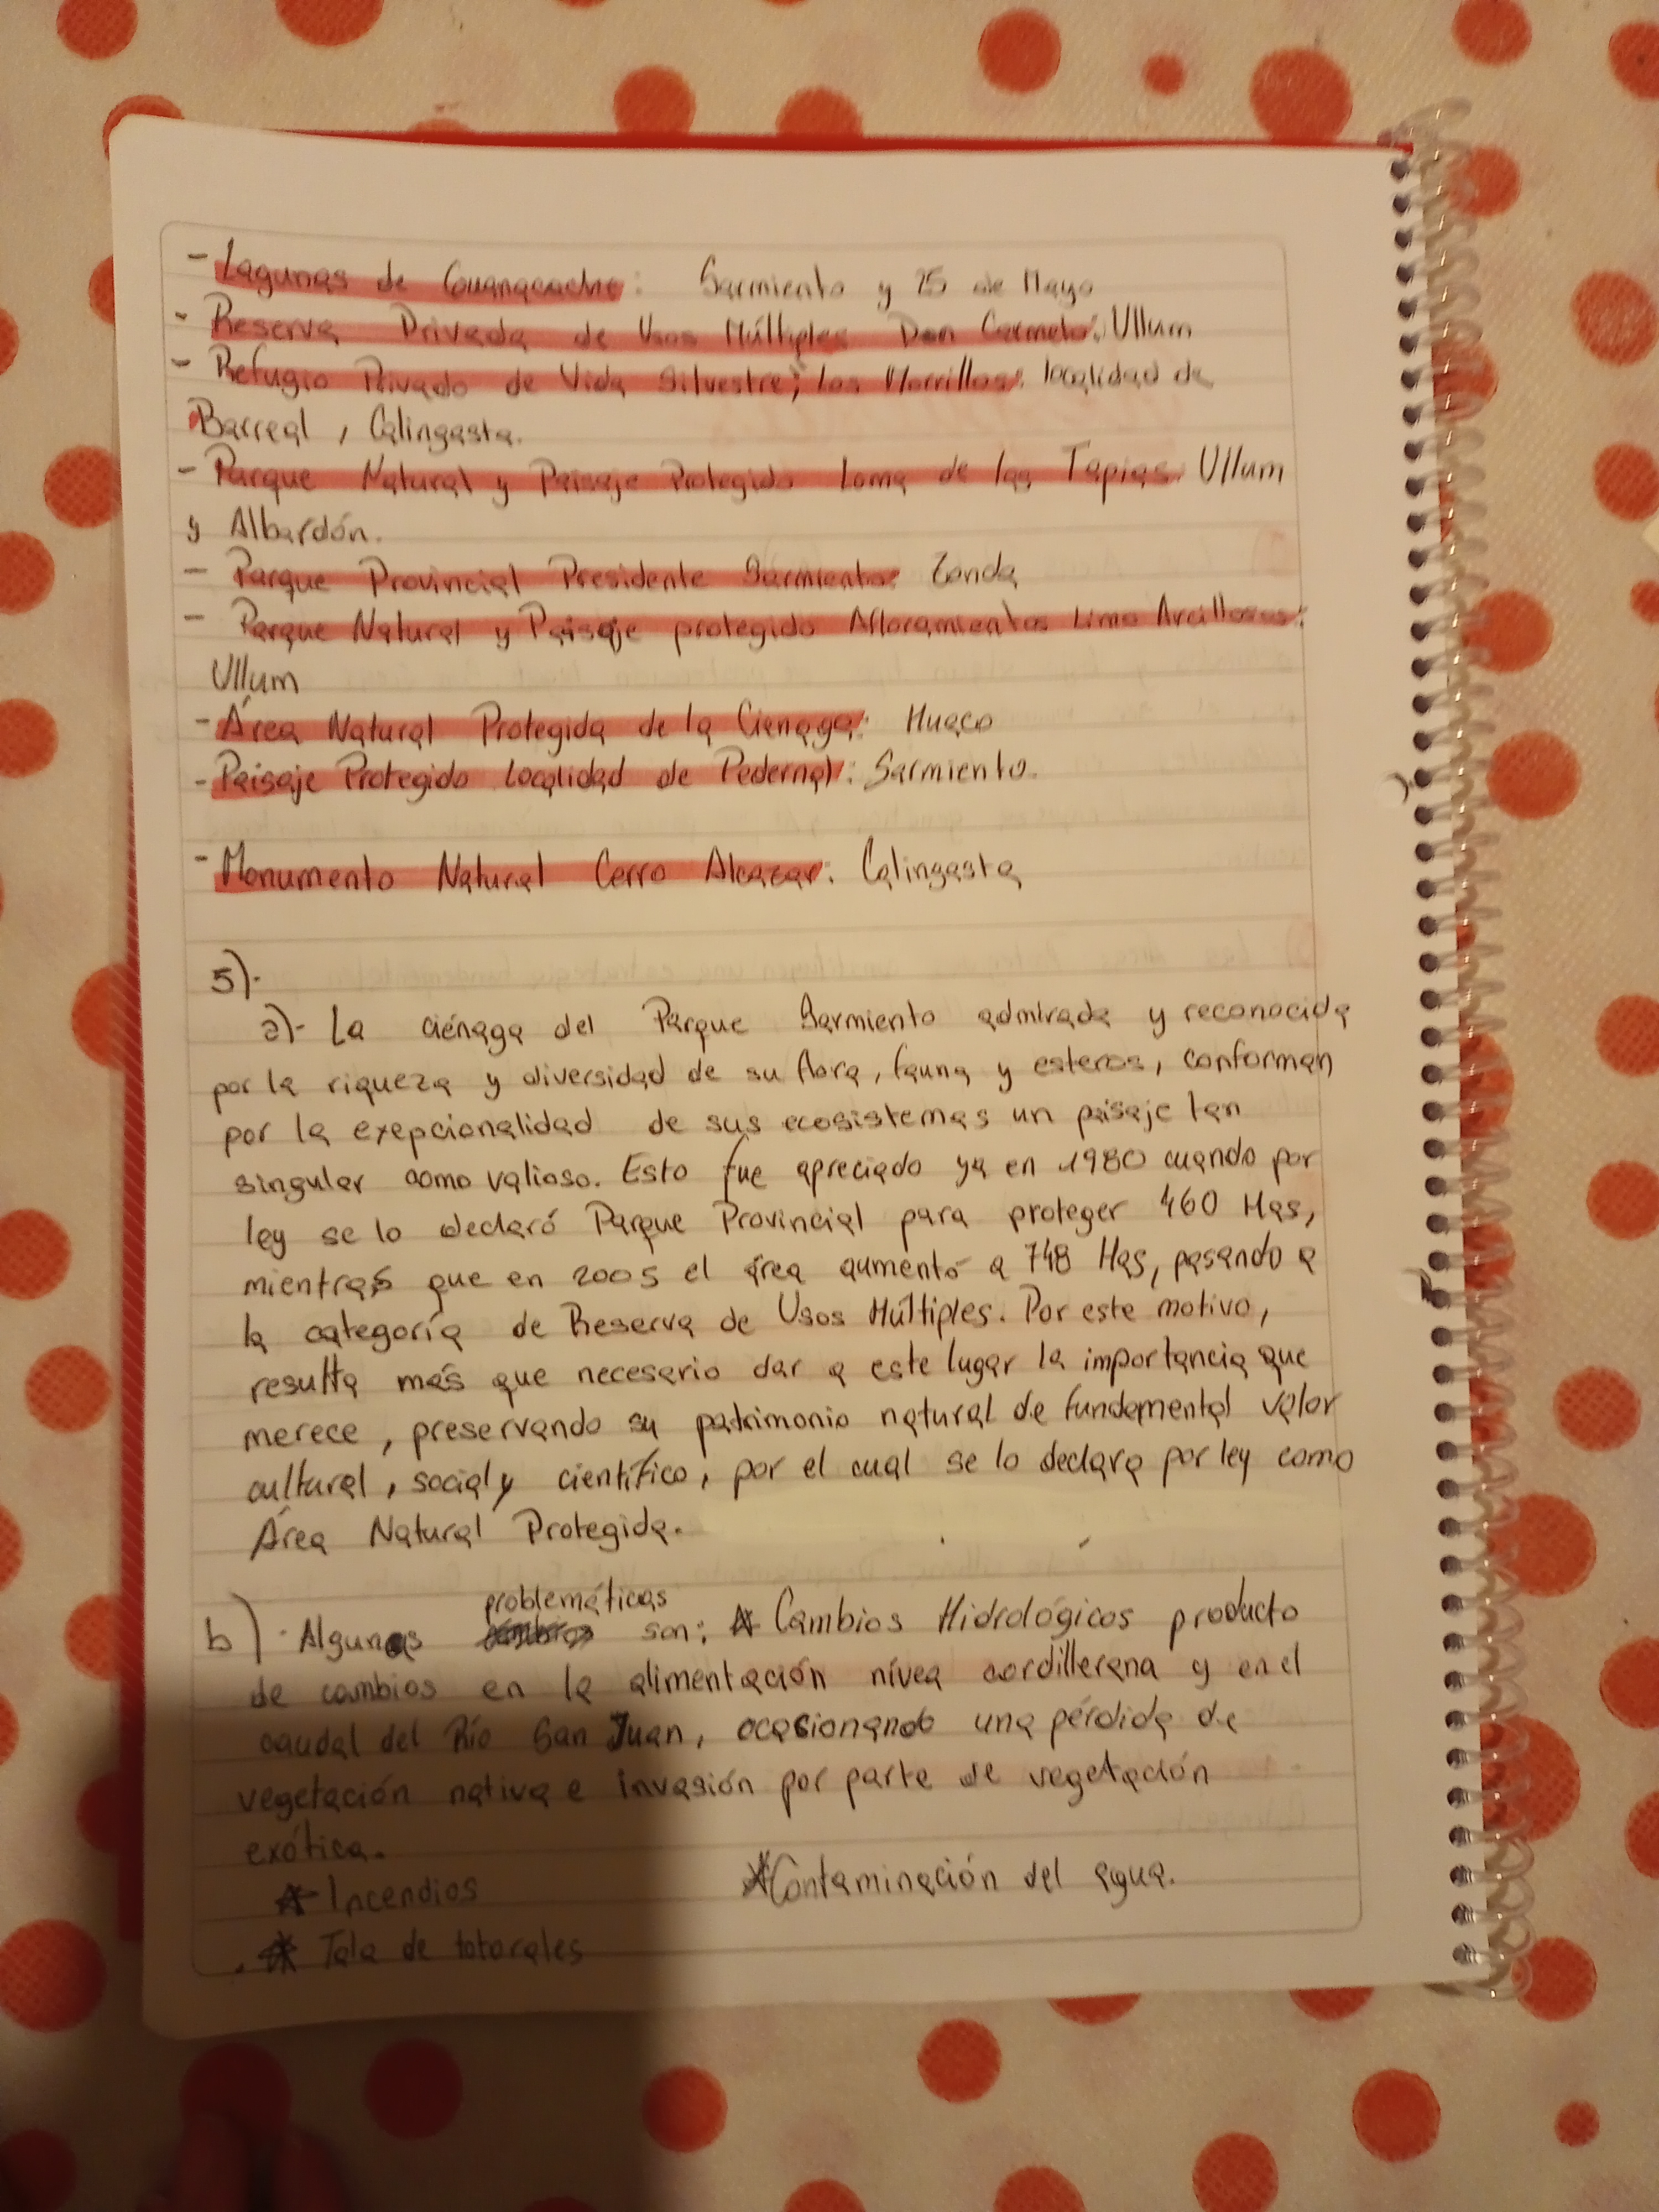 - Lagunas de Guanacache: Sarmiento y 25 de Mayo
- Reserva Privada de Usos Múltiples Don Carmelo: Ullum
- Refugio Privado de Vida Silvestre; Los Morrillos: localidad de
Barreal, Calingasta.
- Parque Natural y Paisaje Protegido Loma de las Tapias: Ullum
y Albardón.
- Parque Provincial Presidente Sarmiento: Zonda
- Parque Natural y Paisaje protegido Afloramientos Limo Arcillosos:
Ullum
- Área Natural Protegida de la Cienaga: Huaco
- Paisaje Protegido localidad de Pedernal: Sarmiento.
- Monumento Natural Cerro Alcazar: Calingasta
5)-
a)- La ciénaga del Parque Sarmiento admirada y reconocida
por la riqueza y diversidad de su flora, fauna y esteros, conforman
por la exepcionalidad de sus ecosistemas un paisaje tan
singular como valioso. Esto fue apreciado ya en 1980 cuando por
ley se lo declaró Parque Provincial para proteger 460 Has,
mientras que en 2005 el área aumentó a 748 Has, pasando a
la categoría de Reserva de Usos Múltiples. Por este motivo,
resulta más que necesario dar a este lugar la importancia que
merece, preservando su patrimonio natural de fundamental valor
cultural, social y científico, por el cual se lo declara por ley como
Área Natural Protegida.
b) Algunas problemáticas son: * Cambios Hidrológicos producto
de cambios en la alimentación nívea cordillerana y en el
caudal del Río San Juan, ocasionando una pérdida de
vegetación nativa e invasión por parte de vegetación
exótica.
* Incendios * Contaminación del agua.
* Tala de totorales